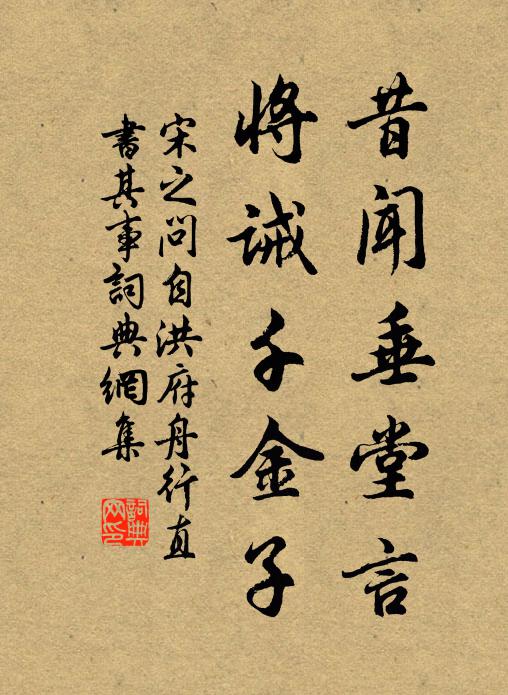 昔聞垂堂言
將誡千金子
宋之問自洪府舟行直
書其事詞典網集
詞典
网印